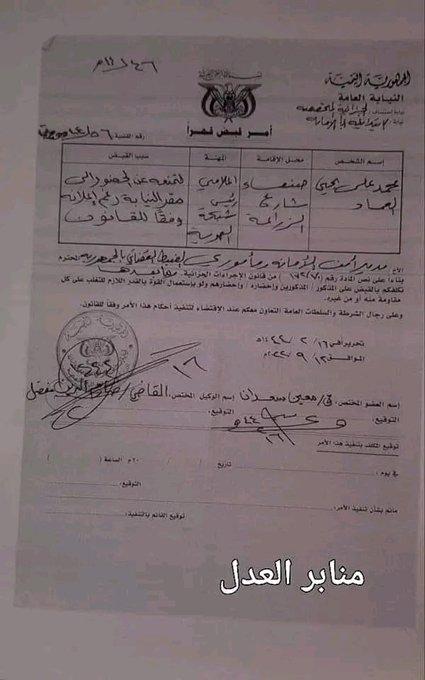 الجمهورية اليمنية
النيابة العامة
أمر قبض قهراً
رقم القضية
إسم الشخص محل الإقامة المهنة سبب القبض
محمد علي يحيى العماد
صنعاء شارع الزراعة
اعلامي رئيس شبكة الهوية
لتمنعه عن الحضور الى مقر النيابة رغم اعلانه وفقا للقانون
الأخ/ مدير أمن الأمانة ومأموري الضبط القضائي بالجمهورية المحترم
بناءاً على نص المادة رقم من قانون الإجراءات الجزائية.
نكلفكم بالقبض على المذكور / المذكورين وإحضاره / وإحضارهم ولو بإستعمال القوة بالقدر اللازم للتغلب على كل
مقاومة منه أو من غيره.
وعلى رجال الشرطة والسلطات العامة التعاون معكم عند الاقتضاء لتنفيذ أحكام هذا الأمر وفقاً للقانون.
تحريراً في
الموافق
إسم العضو المختص: إسم الوكيل المختص: القاضي/
التوقيع: التوقيع:
توقيع المكلف بتنفيذ هذا الأمر
في يوم : تاريخ / / ٢٠م الساعة ( )
ماتم بشأن تنفيذ الأمر: التوقيع:
توقيع القائم بالتنفيذ:
منابر العدل